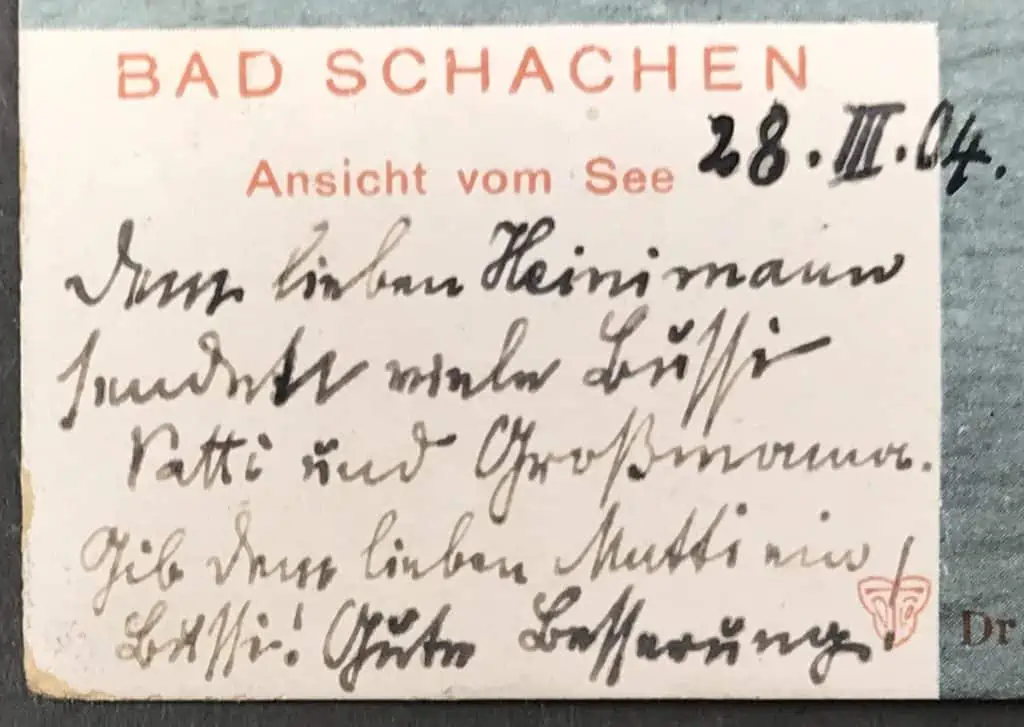 BAD SCHACHEN
Ansicht vom See 28.III.04.
Dem lieben Heinimann
sendet viele Bussi
Vatti und Großmama.
Gib dem lieben Mutti ein
Bussi! Gute Besserung!
Dr